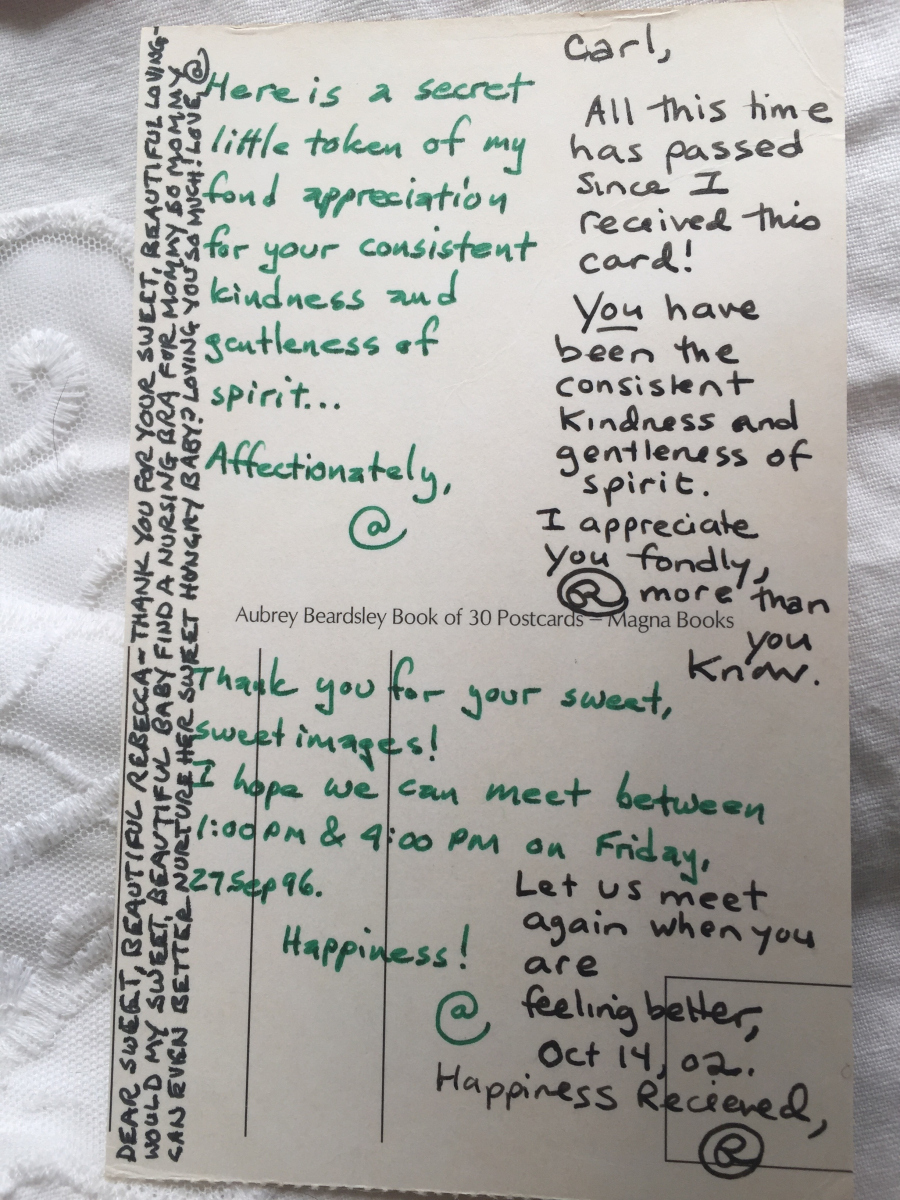 Here is a secret
little token of my
fond appreciation
for your consistent
kindness and
gentleness of
spirit...
Affectionately,
@
Carl,
All this time
has passed
since I
received this
card!
You have
been the
consistent
kindness and
gentleness of
spirit.
I appreciate
you fondly,
more than
you
know.
R
Aubrey Beardsley Book of 30 Postcards – Magna Books
Thank you for your sweet,
sweet images!
I hope we can meet between
1:00 PM & 4:00 PM on Friday,
27 Sep 96.
Happiness!
@
Let us meet
again when you
are
feeling better,
Oct 14, 02.
Happiness Recieved,
R
DEAR SWEET, BEAUTIFUL REBECCA - THANK YOU FOR YOUR SWEET, BEAUTIFUL LOVING-
WOULD MY SWEET, BEAUTIFUL BABY FIND A NURSING BRA FOR MOMMY SO MOMMY
CAN EVEN BETTER NURTURE HER SWEET HUNGRY BABY? LOVING YOU SO MUCH! LOVE, @